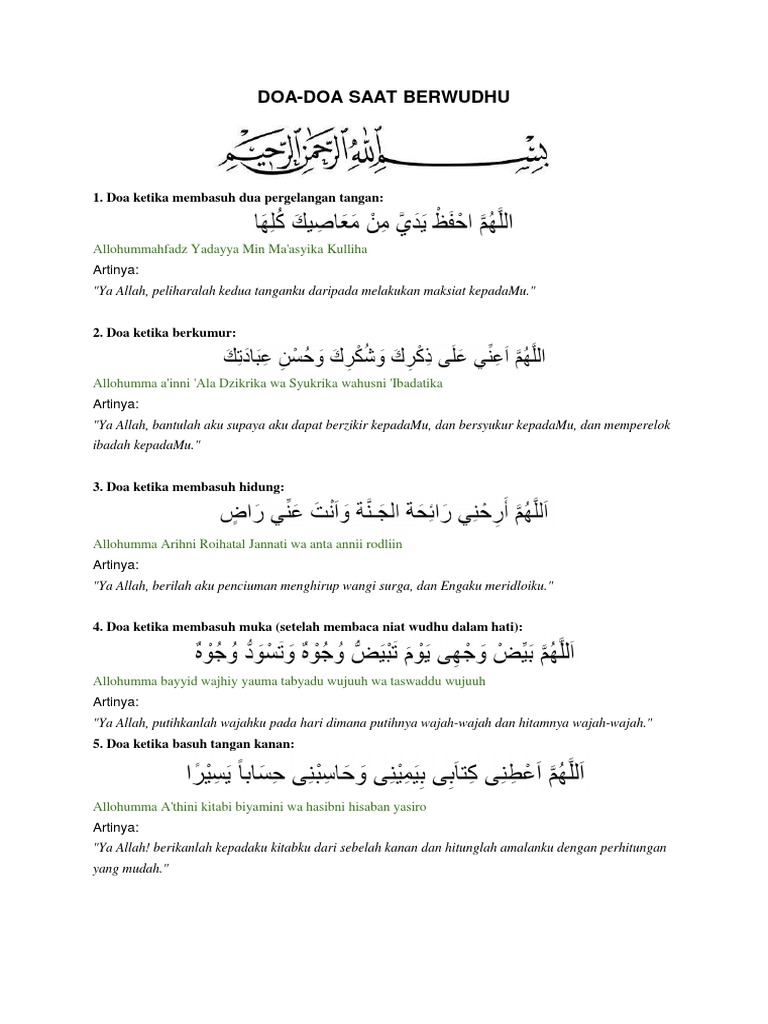 DOA-DOA SAAT BERWUDHU
بِسْمِ اللهِ الرَّحْمٰنِ الرَّحِيْمِ
1. Doa ketika membasuh dua pergelangan tangan:
اللَّهُمَّ احْفَظْ يَدَيَّ مِنْ مَعَاصِيكَ كُلِهَا
Allohummahfadz Yadayya Min Ma'asyika Kulliha
Artinya:
"Ya Allah, peliharalah kedua tanganku daripada melakukan maksiat kepadaMu."
2. Doa ketika berkumur:
اللَّهُمَّ اَعِنِّي عَلَى ذِكْرِكَ وَشُكْرِكَ وَحُسْنِ عِبَادَتِكَ
Allohumma a'inni 'Ala Dzikrika wa Syukrika wahusni 'Ibadatika
Artinya:
"Ya Allah, bantulah aku supaya aku dapat berzikir kepadaMu, dan bersyukur kepadaMu, dan memperelok
ibadah kepadaMu."
3. Doa ketika membasuh hidung:
اَللَّهُمَّ أَرِحْنِي رَائِحَة الجَـنَّة وَاَنْتَ عَنِّي رَاضٍ
Allohumma Arihni Roihatal Jannati wa anta annii rodliin
Artinya:
"Ya Allah, berilah aku penciuman menghirup wangi surga, dan Engaku meridloiku."
4. Doa ketika membasuh muka (setelah membaca niat wudhu dalam hati):
اَللَّهُمَّ بَيِّضْ وَجْهِى يَوْمَ تَبْيَضُّ وُجُوْهٌ وَتَسْوَدُّ وُجُوْهٌ
Allohumma bayyid wajhiy yauma tabyadu wujuuh wa taswaddu wujuuh
Artinya:
"Ya Allah, putihkanlah wajahku pada hari dimana putihnya wajah-wajah dan hitamnya wajah-wajah."
5. Doa ketika basuh tangan kanan:
اَللَّهُمَّ اَعْطِنِى كِتاَبِى بِيَمِيْنِى وَحَاسِبْنِى حِسَاباً يَسِيْرًا
Allohumma A'thini kitabi biyamini wa hasibni hisaban yasiro
Artinya:
"Ya Allah! berikanlah kepadaku kitabku dari sebelah kanan dan hitunglah amalanku dengan perhitungan
yang mudah."